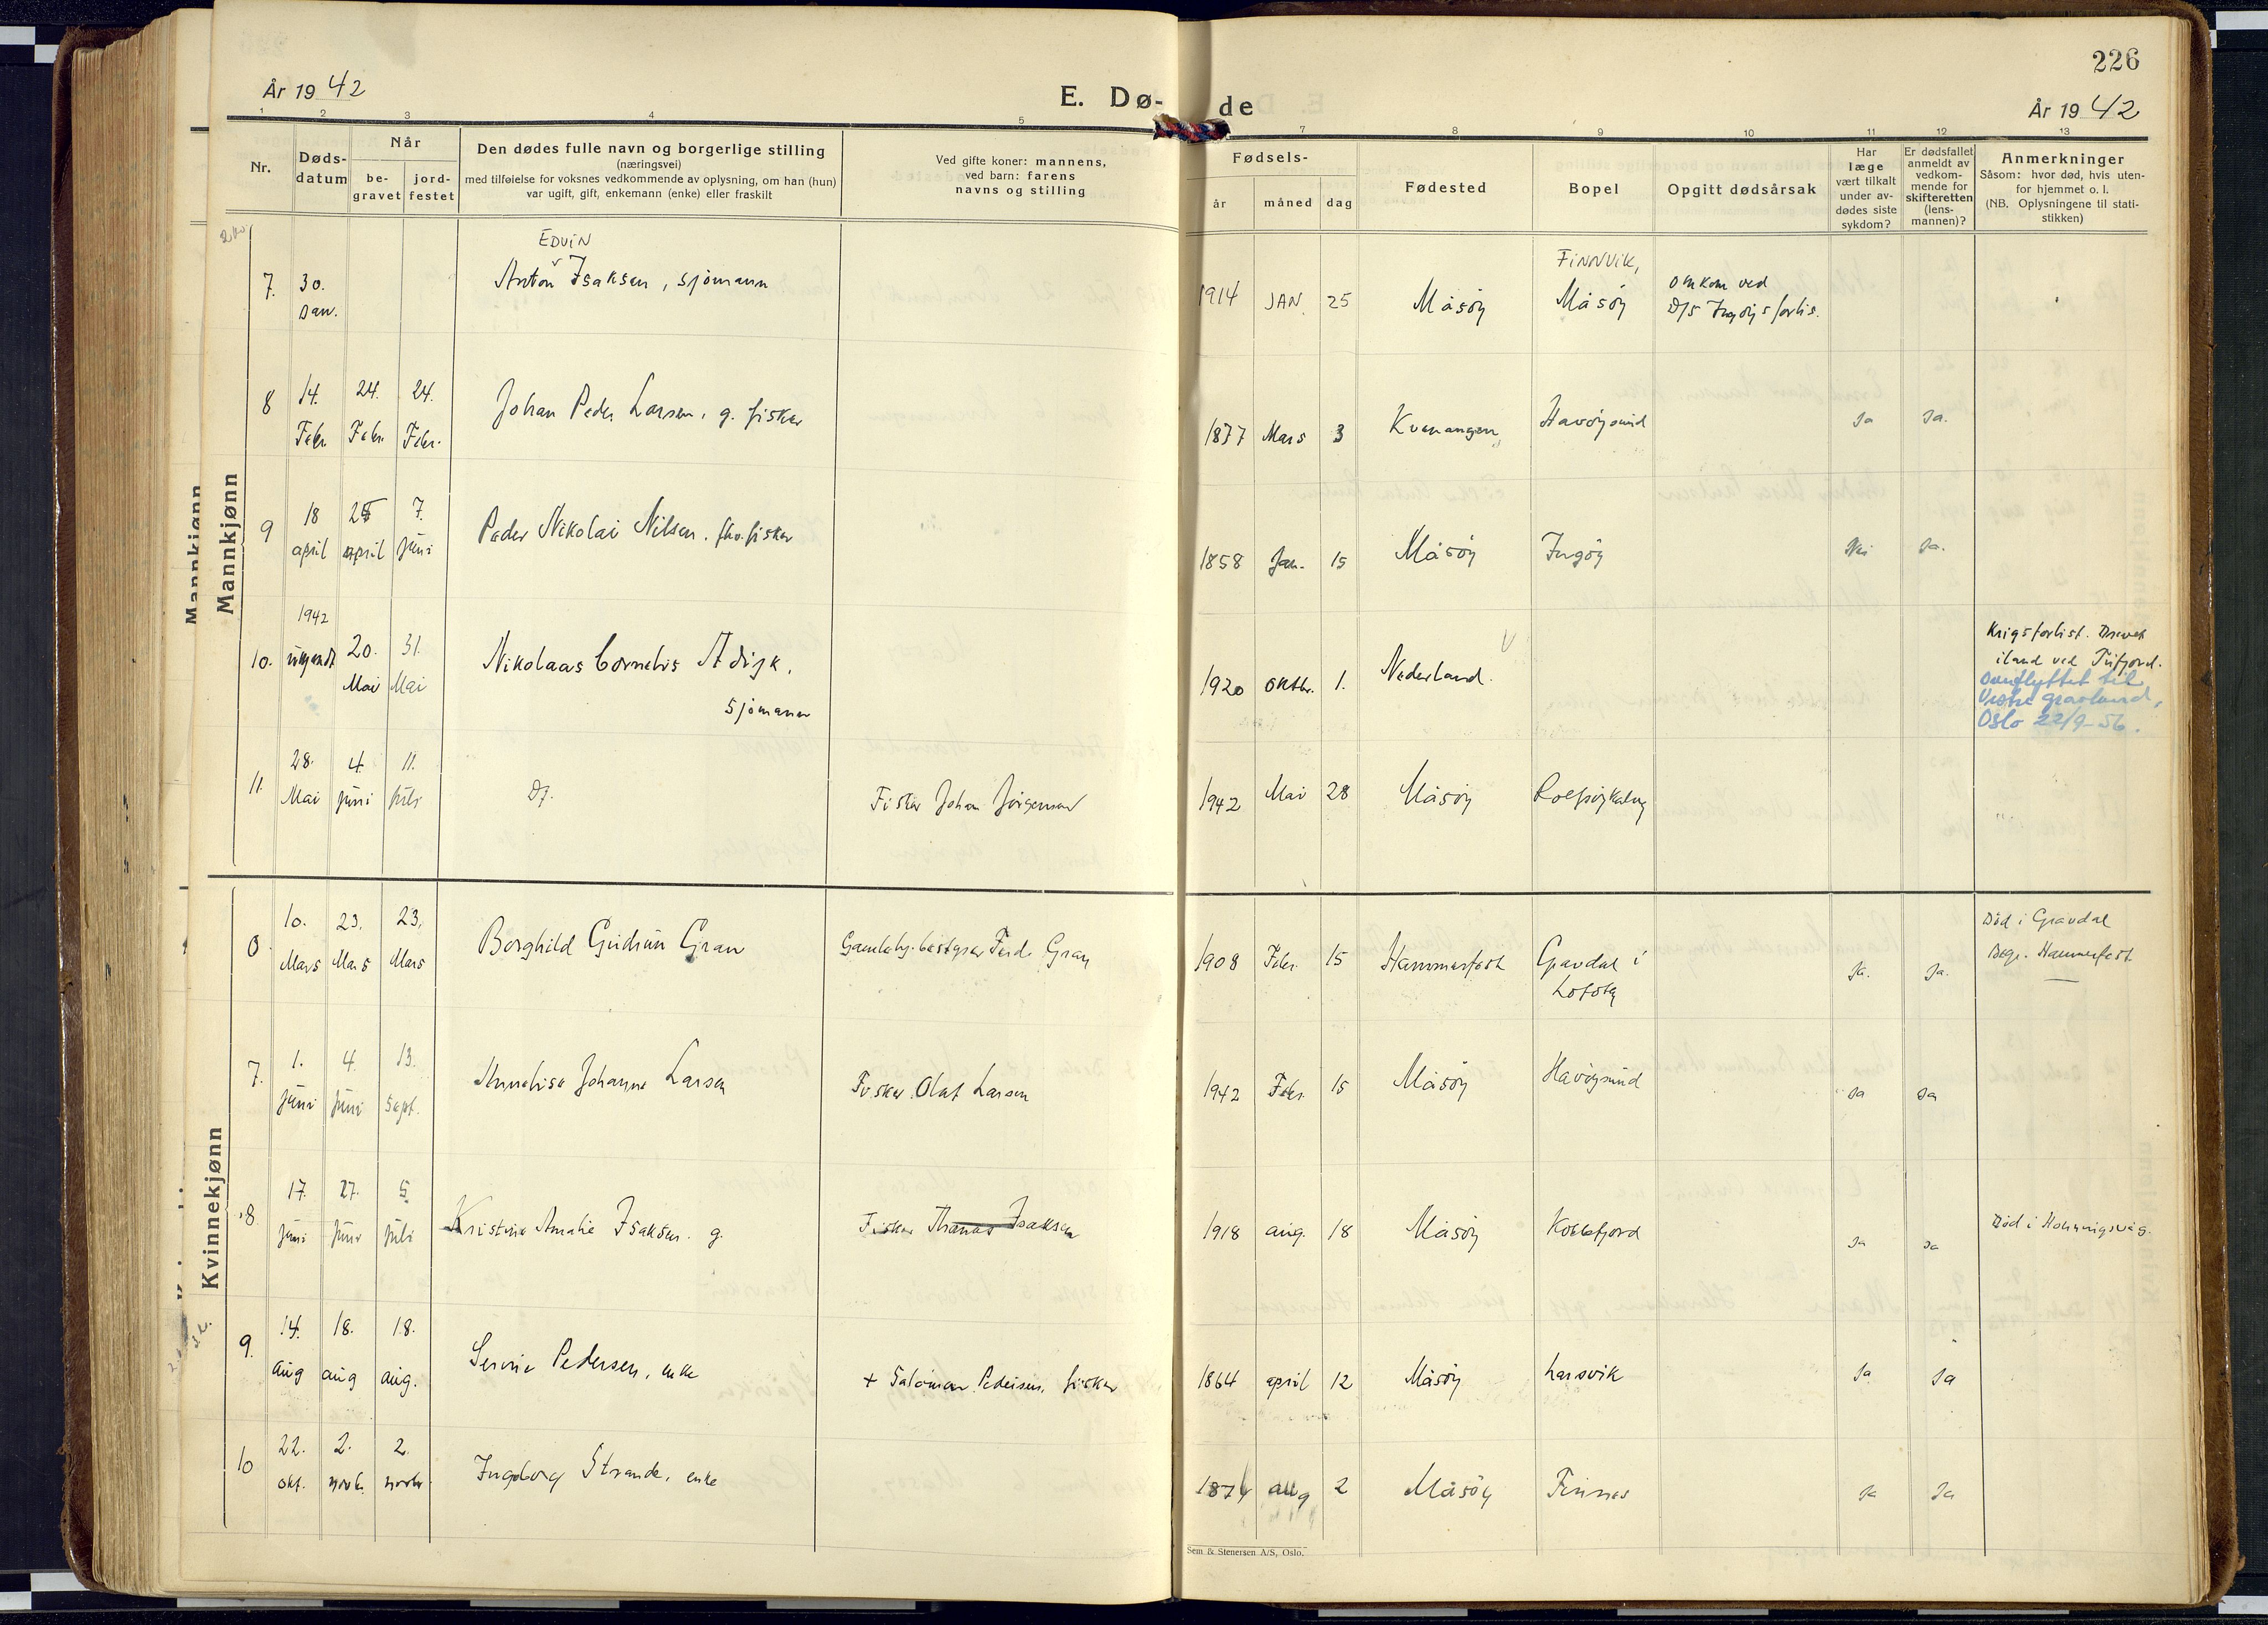 226
År 1942
E. Døde
År 1942
1 2 3 4 5 7 8 9 10 11 12 13
Nr.
Døds-
datum
Når
be-
gravet
jord-
festet
Den dødes fulle navn og borgerlige stilling
(næringsvei)
med tilføielse for voksnes vedkommende av oplysning, om han (hun)
var ugift, gift, enkemann (enke) eller fraskilt
Ved gifte koner: mannens,
ved barn: farens
navns og stilling
Fødsels-
år måned dag
Fødested
Bopel
Opgitt dødsårsak
Har
læge
vært tilkalt
under av-
dødes siste
sykdom?
Er dødsfallet
anmeldt av
vedkom-
mende for
skifteretten
(lens-
mannen)?
Anmerkninger
Såsom: hvor død, hvis uten-
for hjemmet o. l.
(NB. Oplysningene til stati-
stikken)
Mannkjønn
Mannkjønn
7. 30. Jan.
EDVIN
Anton Isaksen, sjømann
1914 JAN. 25 Måsøy
FINNVIK,
Måsøy
omkom ved
D/S Ingøys forlis.
8 14. Febr. 24. Febr. 24. Febr.
Johan Peder Larsen, g. fisker
1877 Mars 3 Kvenangen Havøysund Ja Ja.
9 18 april 25 april 7. juni
Peder Nikolai Nilsen, fisker
1858 Jan. 15 Måsøy Ingøy Nei Ja.
10. 1942 ukjendt 20. Mai 31. Mai
Nikolaas Cornelis A dijk,
sjømann
1920 oktbr. 1. Nederland.
Krigsforlist. Drevet
iland ved Tufjord.
Overflyttet til
Vestre gravlund,
Oslo 22/9-56.
11. 28. Mai 4. juni 11. juli
Df.
Fisker Johan Jørgensen
1942 Mai 28 Måsøy Rolfsøy
Kvinnekjønn
6. 10. Mars 23. Mars 23. Mars
Borghild Gudrun Gran
bestyrer Ferd. Gran
1908 Febr. 15 Hammerfest
Gravdal i
Lofoten
Ja. Ja.
Død i Gravdal
Begr. Hammerfest
7. 1. juni 4. juni 13. sept.
Annelise Johanne Larsen
Fisker Olaf Larsen
1942 Febr. 15 Måsøy Havøysund Ja Ja
8 17. juni 27. juni 5. juli
Kristine Amalie Isaksen. g.
Fisker Thomas Isaksen
1918 aug. 18 Måsøy Kobbefjord Ja Ja
Død i Honningsvåg.
9. 14. aug 18. aug 18. aug.
Serine Pedersen, enke
+ Salomon Pedersen, fisker
1864 april 12 Måsøy Larsvik Ja Ja
10 22. okt. 2. novbr. 2. novbr.
Ingeborg Strande, enke
1874 aug 2 Måsøy Finnes Ja Ja
Sem & Stenersen A/S, Oslo.